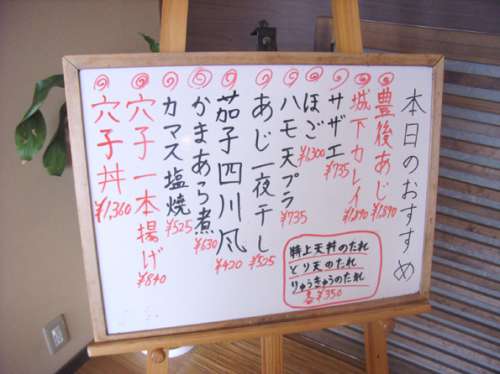 本日のおすすめ
豊後あじ ¥1,890
城下カレイ ¥1,890
サザエ ¥735
ほご ¥1,300
ハモ天プラ ¥735
あじ一夜干し ¥525
茄子四川風 ¥420
かまあら煮 ¥630
カマス塩焼 ¥525
穴子一本揚げ ¥840
穴子丼 ¥1,360
特上天丼のたれ
とり天のたれ
りゅうきゅうのたれ
各¥350